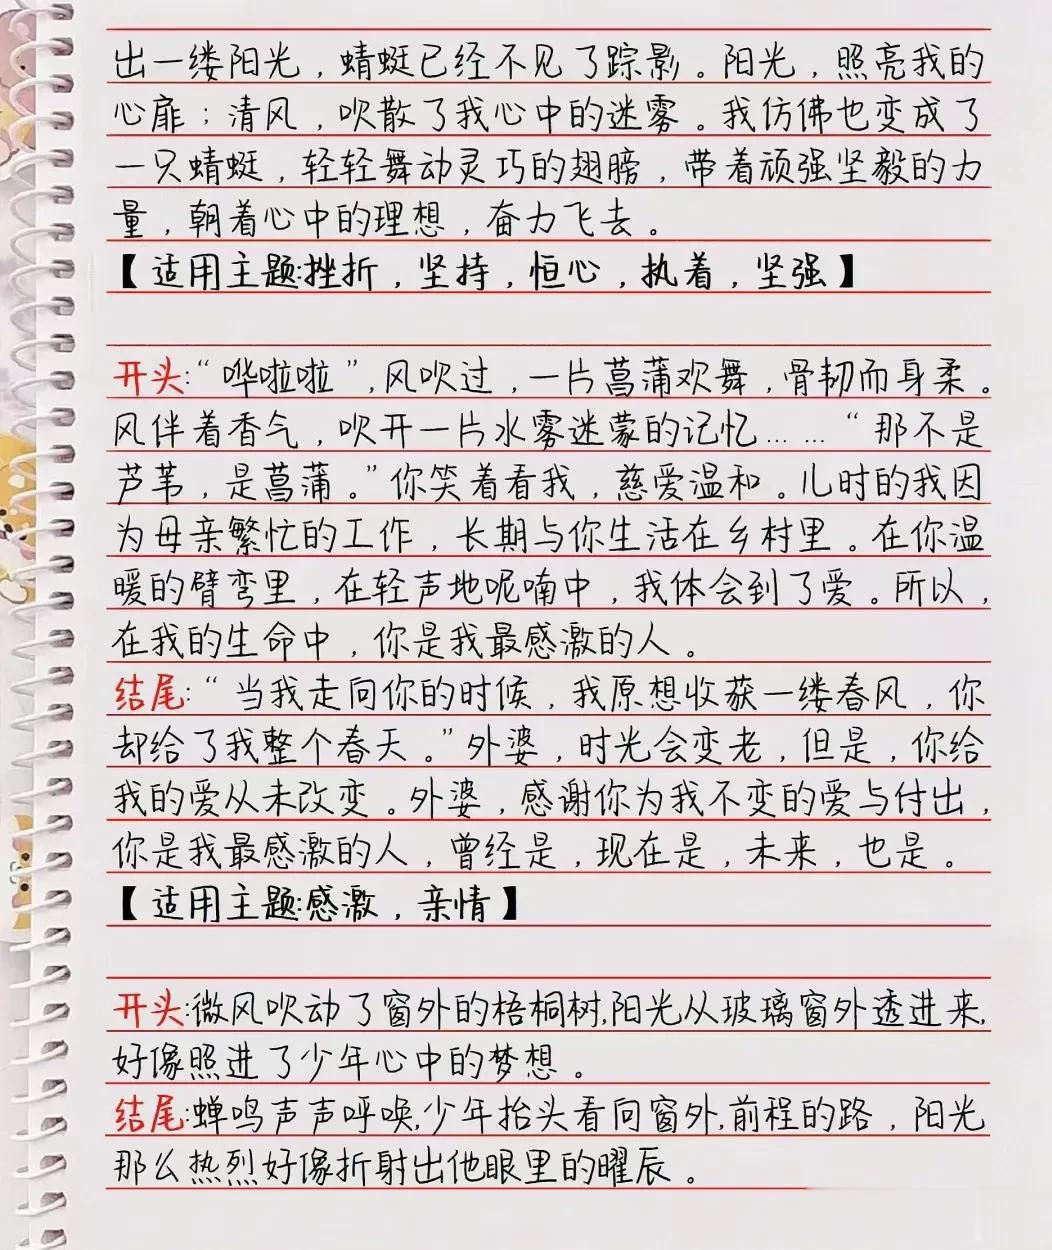 出一缕阳光，蜻蜓已经不见了踪影。阳光，照亮我的
心扉；清风，吹散了我心中的迷雾。我仿佛也变成了
一只蜻蜓，轻轻舞动灵巧的翅膀，带着顽强坚毅的力
量，朝着心中的理想，奋力飞去。
【适用主题:挫折，坚持，恒心，执着，坚强】
开头:“哗啦啦”，风吹过，一片菖蒲欢舞，骨韧而身柔。
风伴着香气，吹开一片水雾迷蒙的记忆……“那不是
芦苇，是菖蒲。”你笑着看我，慈爱温和。儿时的我因
为母亲繁忙的工作，长期与你生活在乡村里。在你温
暖的臂弯里，在轻声地呢喃中，我体会到了爱。所以，
在我的生命中，你是我最感激的人。
结尾:“当我走向你的时候，我原想收获一缕春风，你
却给了我整个春天。”外婆，时光会变老，但是，你给
我的爱从未改变。外婆，感谢你为我不变的爱与付出，
你是我最感激的人，曾经是，现在是，未来，也是。
【适用主题:感激，亲情】
开头:微风吹动了窗外的梧桐树,阳光从玻璃窗外透进来,
好像照进了少年心中的梦想。
结尾:蝉鸣声声呼唤,少年抬头看向窗外,前程的路，阳光
那么热烈好像折射出他眼里的曜辰。